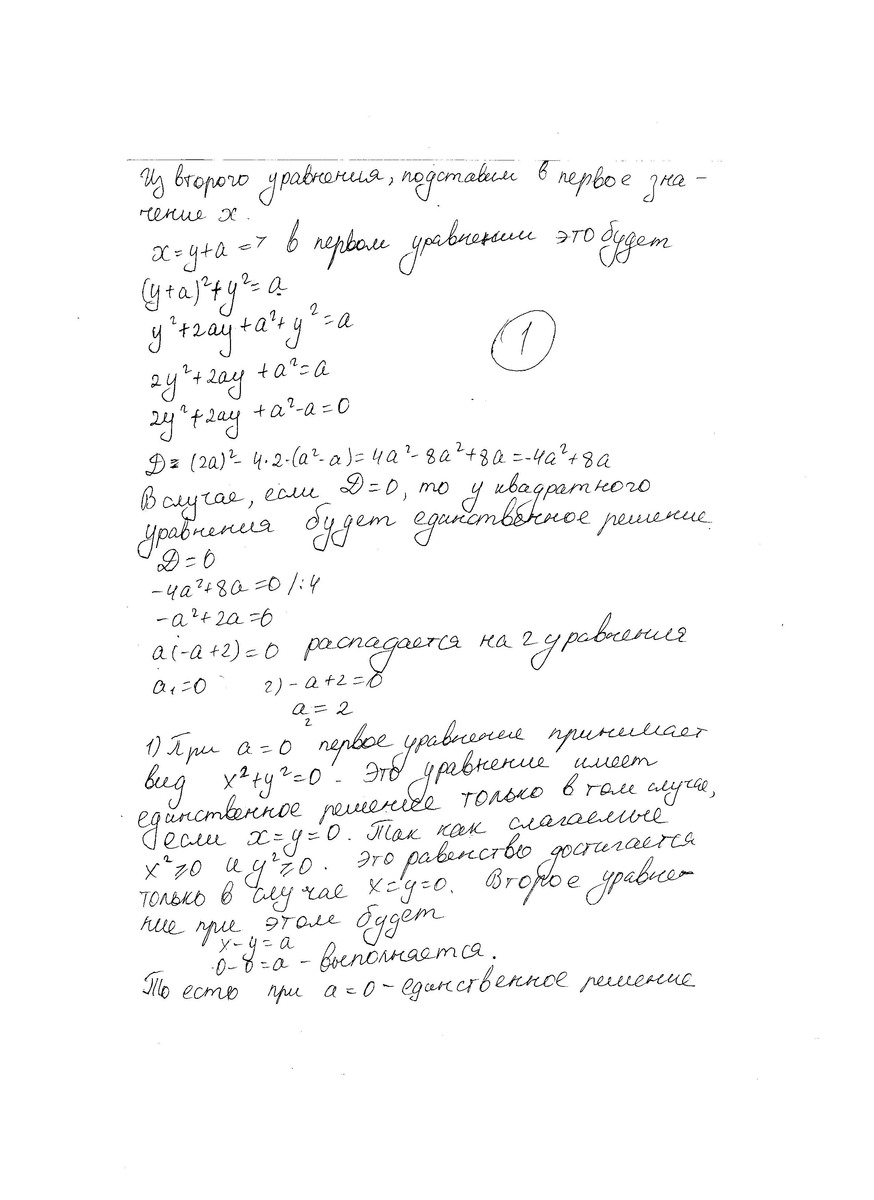 Из второго уравнения, подставим в первое зна-
чение x.
x=y+a => в первом уравнении это будет
(y+a)²+y²=a
y²+2ay+a²+y²=a
1
2y²+2ay+a²=a
2y²+2ay+a²-a=0
D=(2a)²-4·2·(a²-a)=4a²-8a²+8a=-4a²+8a
В случае, если D=0, то у квадратного
уравнения будет единственное решение
D=0
-4a²+8a=0 /:4
-a²+2a=0
a(-a+2)=0 распадается на 2 уравнения
a₁=0 2) -a+2=0
a₂=2
1) При a=0 первое уравнение принимает
вид x²+y²=0. Это уравнение имеет
единственное решение только в том случае,
если x=y=0. Так как слагаемые
x²≥0 и y²≥0. Это равенство достигается
только в случае x=y=0. Второе уравне-
ние при этом будет
x-y=a
0-0=a - выполняется.
То есть при a=0 - единственное решение